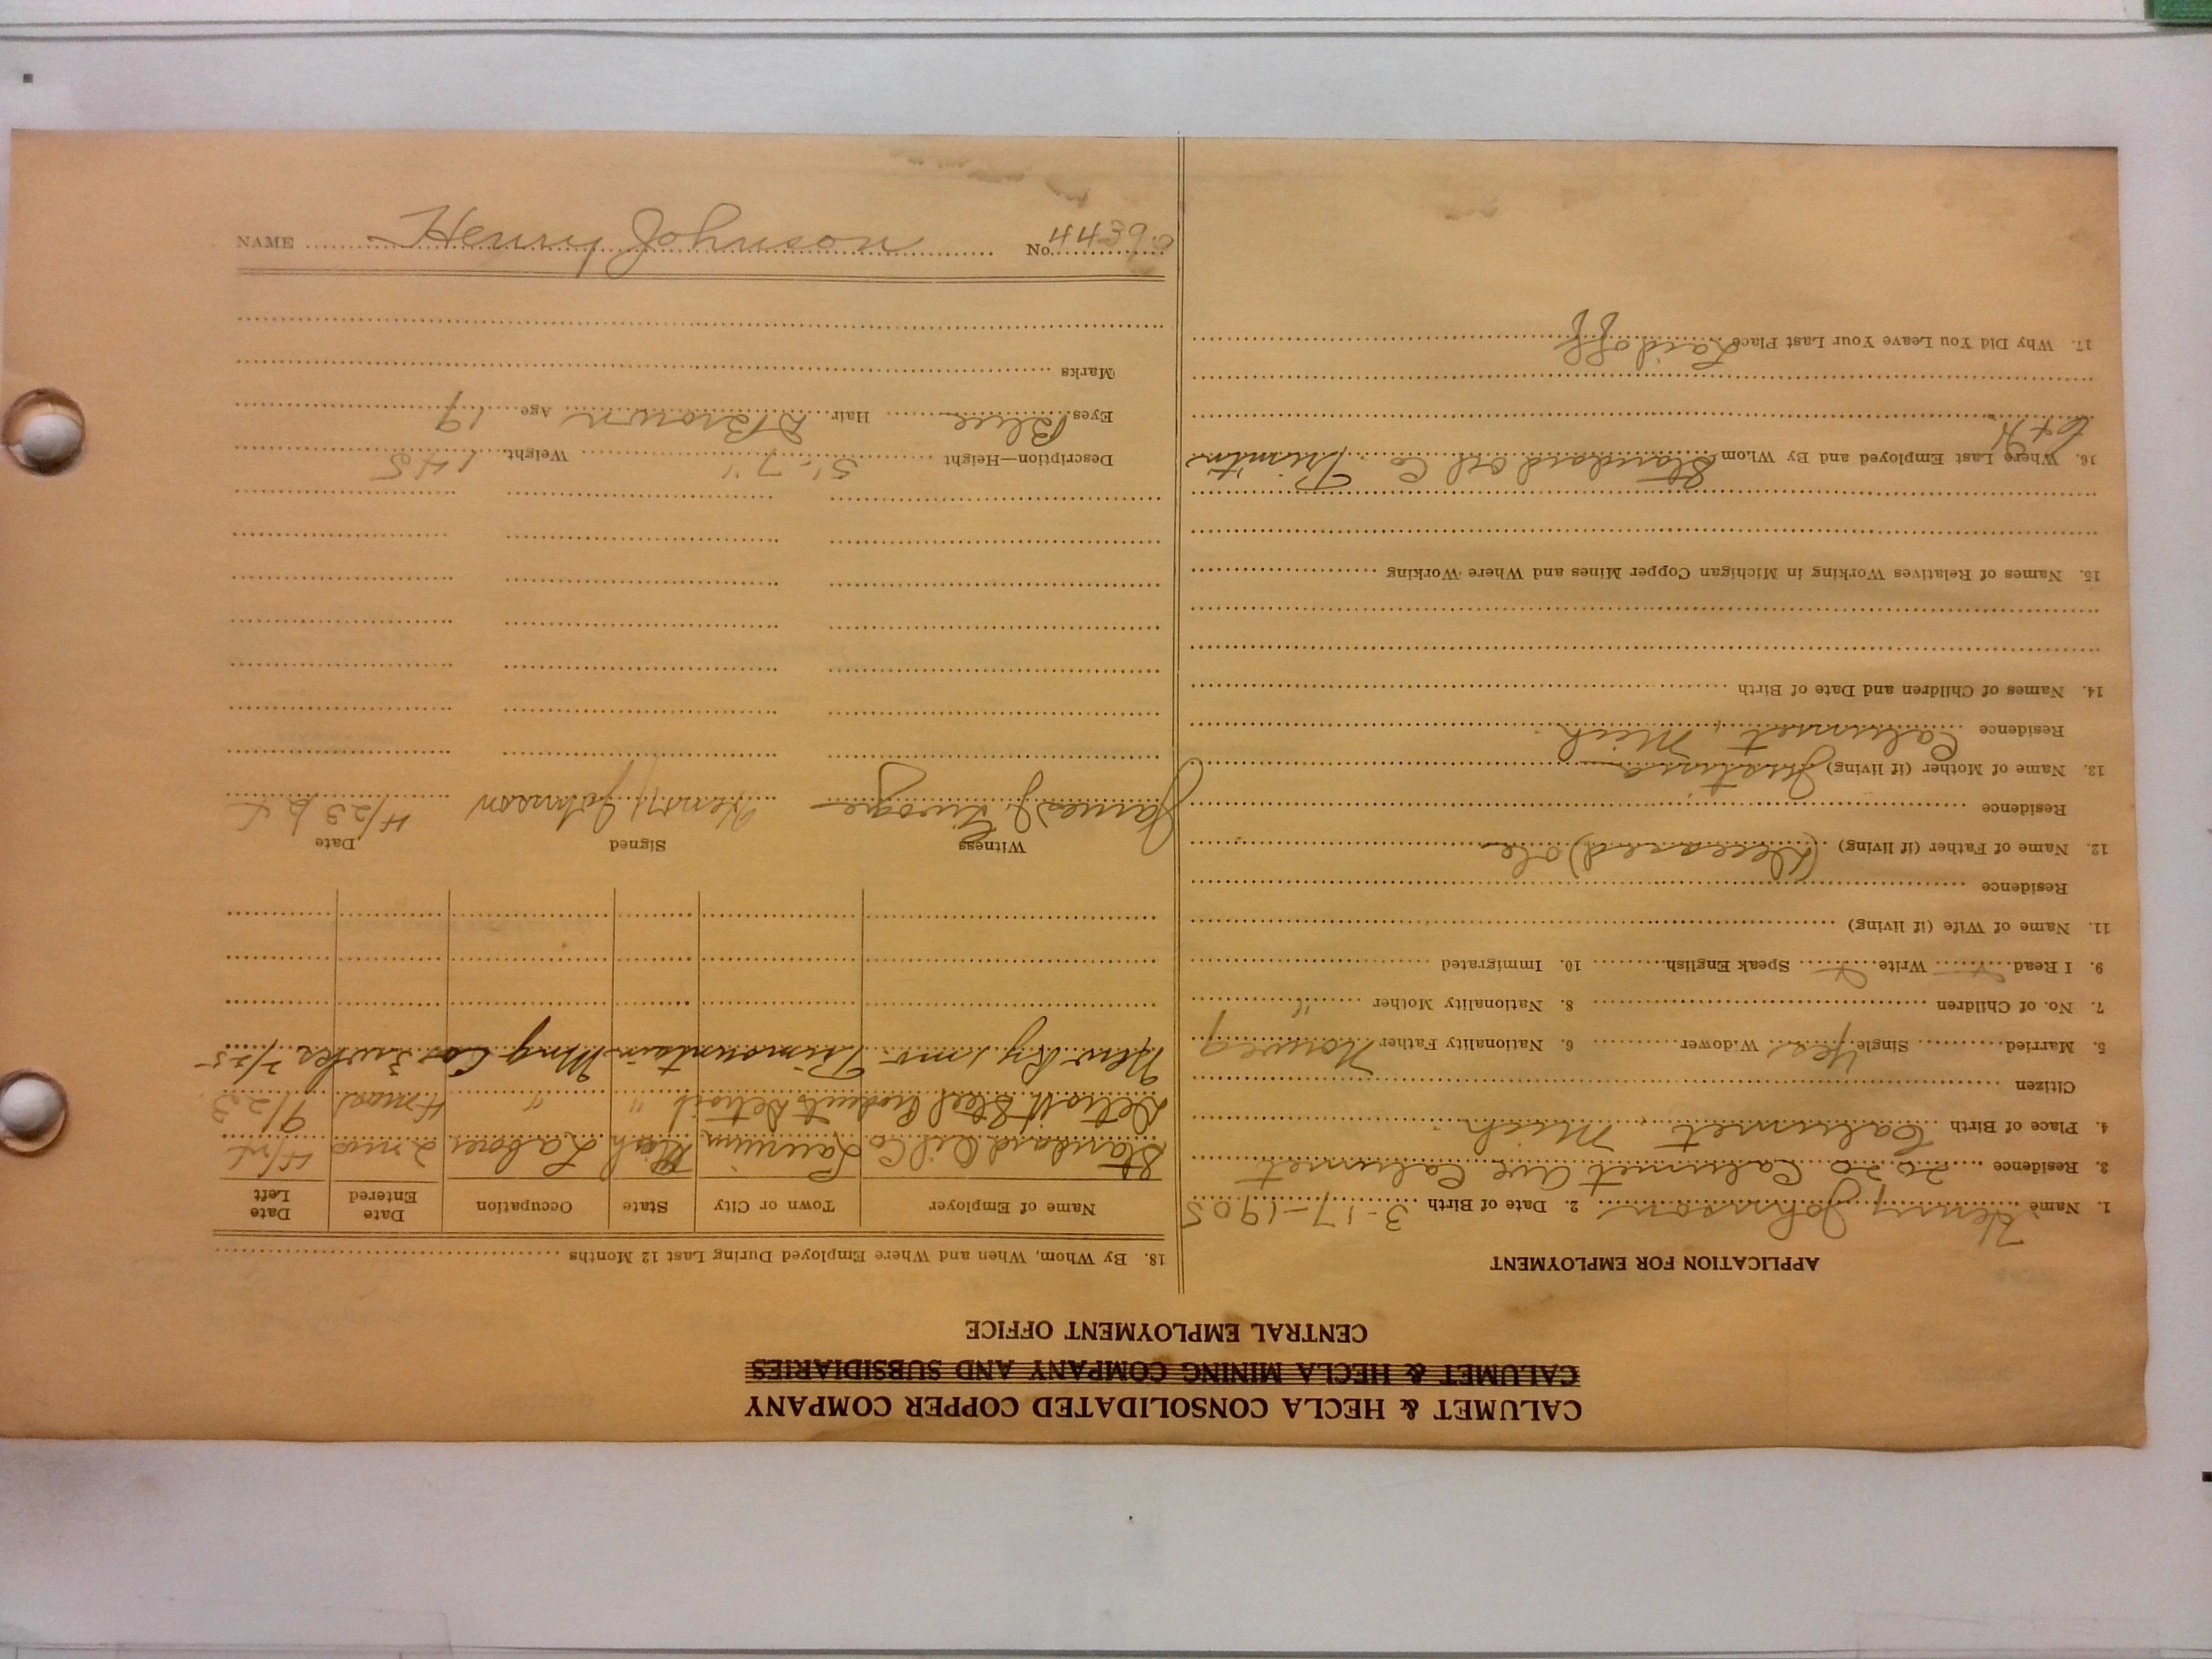 CALUMET & HECLA CONSOLIDATED COPPER COMPANY
CALUMET & HECLA MINING COMPANY AND SUBSIDIARIES
CENTRAL EMPLOYMENT OFFICE
APPLICATION FOR EMPLOYMENT
1. Name Henry Johnson 2. Date of Birth 3-17-1905
3. Residence 2020 Calumet Ave Calumet
4. Place of Birth Calumet, Mich.
Citizen
5. Married Single Yes Widower 6. Nationality Father Norweg
7. No. of Children 8. Nationality Mother "
9. I Read Write Speak English 10. Immigrated
11. Name of Wife (if living)
Residence
12. Name of Father (if living) (Deceased) Ole
Residence
13. Name of Mother (if living) Justina
Residence Calumet, Mich.
14. Names of Children and Date of Birth
15. Names of Relatives Working in Michigan Copper Mines and Where Working
16. Where Last Employed and By Whom Standard Oil Co. Trimtn
17. Why Did You Leave Your Last Place Laid off
18. By Whom, When and Where Employed During Last 12 Months
Name of Employer Town or City State Occupation Date Entered Date Left
Standard Oil Co Laurium Mich Laborer 2 mos
Detroit Steel Products Detroit " " 4 mos 9/23
Trimountain Mng Co 2/25
Witness Signed Date
James J. Henry Johnson 4/23
Description—Height 5'-7" Weight 145
Eyes Blue Hair D Brown Age 19
Marks
NAME Henry Johnson No. 44390